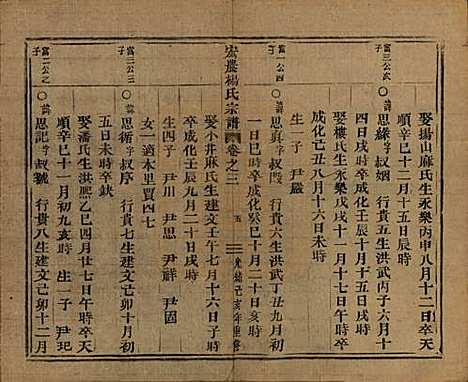 娶揚山麻氏生永樂丙申八月十二日卒天
順辛巳十二月十五日辰時
富三公次子
○諱思緣字叔姻 行貴五生洪武丙子六月十
四日戌時卒成化壬辰十月十五日戌時
娶樓氏生永樂戊戌十一月十七日午時卒
成化己丑八月十六日未時
生一子 尹嚴
富一公四子
○諱思真字叔 行貴六生洪武丁丑九月初
一日巳時卒成化癸巳十月二十日亥時
宏農楊氏宗譜 卷之三 五 光緒己亥年重修
娶小井麻氏生建文壬午七月十六日子時
卒成化壬辰九月二十日戌時
生四子 尹川 尹思 尹祥 尹固
女一適本里賈四七
富二公三子
○諱思循字叔序 行貴七生建文己卯十月初
五日未時卒缺
娶潘氏生洪熙乙巳四月廿七日午時卒天
順辛巳十一月初九亥時 生一子 尹玘
富二公之子
○諱思記字叔號 行貴八生建文己卯十二月